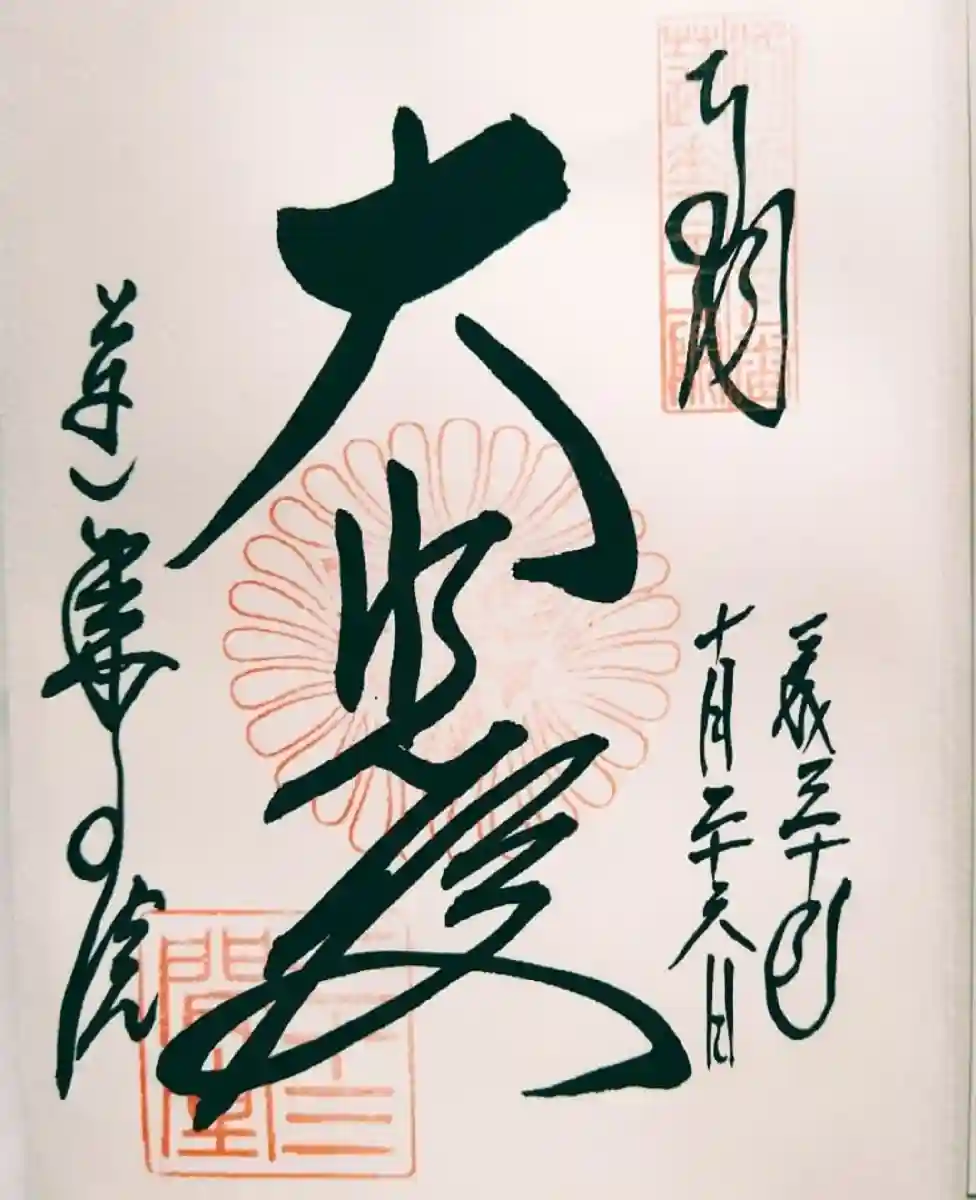 奉拝
平成三十年
十月二十六日
大悲殿
蓮華王院
三十三間堂